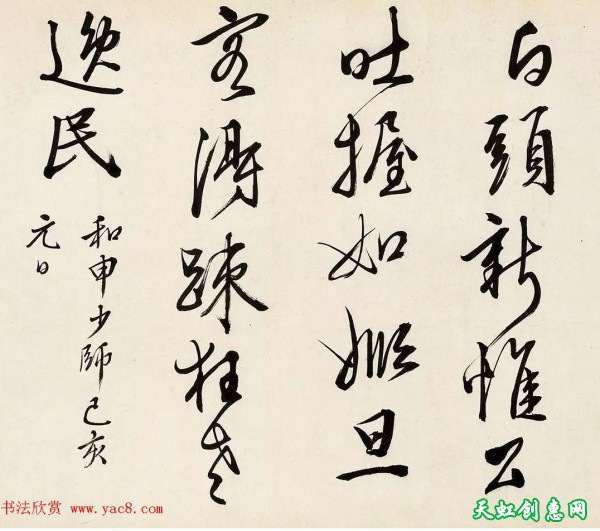 白頭新惟公
吐握如姬旦
容得踈狂老
逸民
和申少師己亥
元日
书法欣赏 www.yac8.com
天虹创惠网